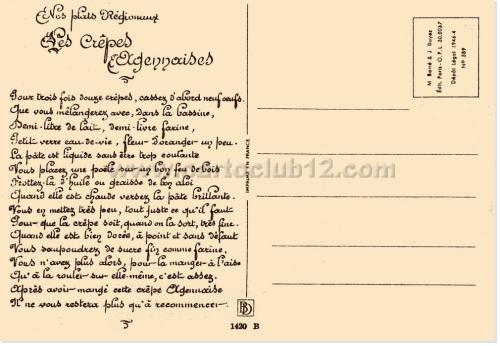 Nos plats Régionaux
Les Crêpes
Agennaises
Pour trois fois douze crêpes, cassez d'abord neuf œufs.
Que vous mélangerez avec, dans la bassine,
Demi-litre de lait, demi-livre farine,
Petit verre eau-de-vie, fleur d'oranger un peu.
La pâte est liquide sans être trop coulante
Vous placez une poêle sur un bon feu de bois
Frottez-la d'huile ou graisse de bon aloi
Quand elle est chaude versez la pâte brillante.
Vous en mettez très peu, tout juste ce qu'il faut
Pour que la crêpe soit, quand on la sort, très fine.
Quand elle est bien dorée, à point et sans défaut
Vous saupoudrez de sucre fin comme farine,
Vous n'avez plus alors, pour la manger à l'aise
Qu'à la rouler sur elle-même, c'est assez.
Après avoir mangé cette crêpe Agennaise
Il ne vous restera plus qu'à recommencer.
1420 B
BD
IMPRIMÉ EN FRANCE
M Barré & J Dayez
Édit. Paris - O.P.L 30.0037
Dépôt Légal 1946.4
N° 589
www.cartoclub12.com